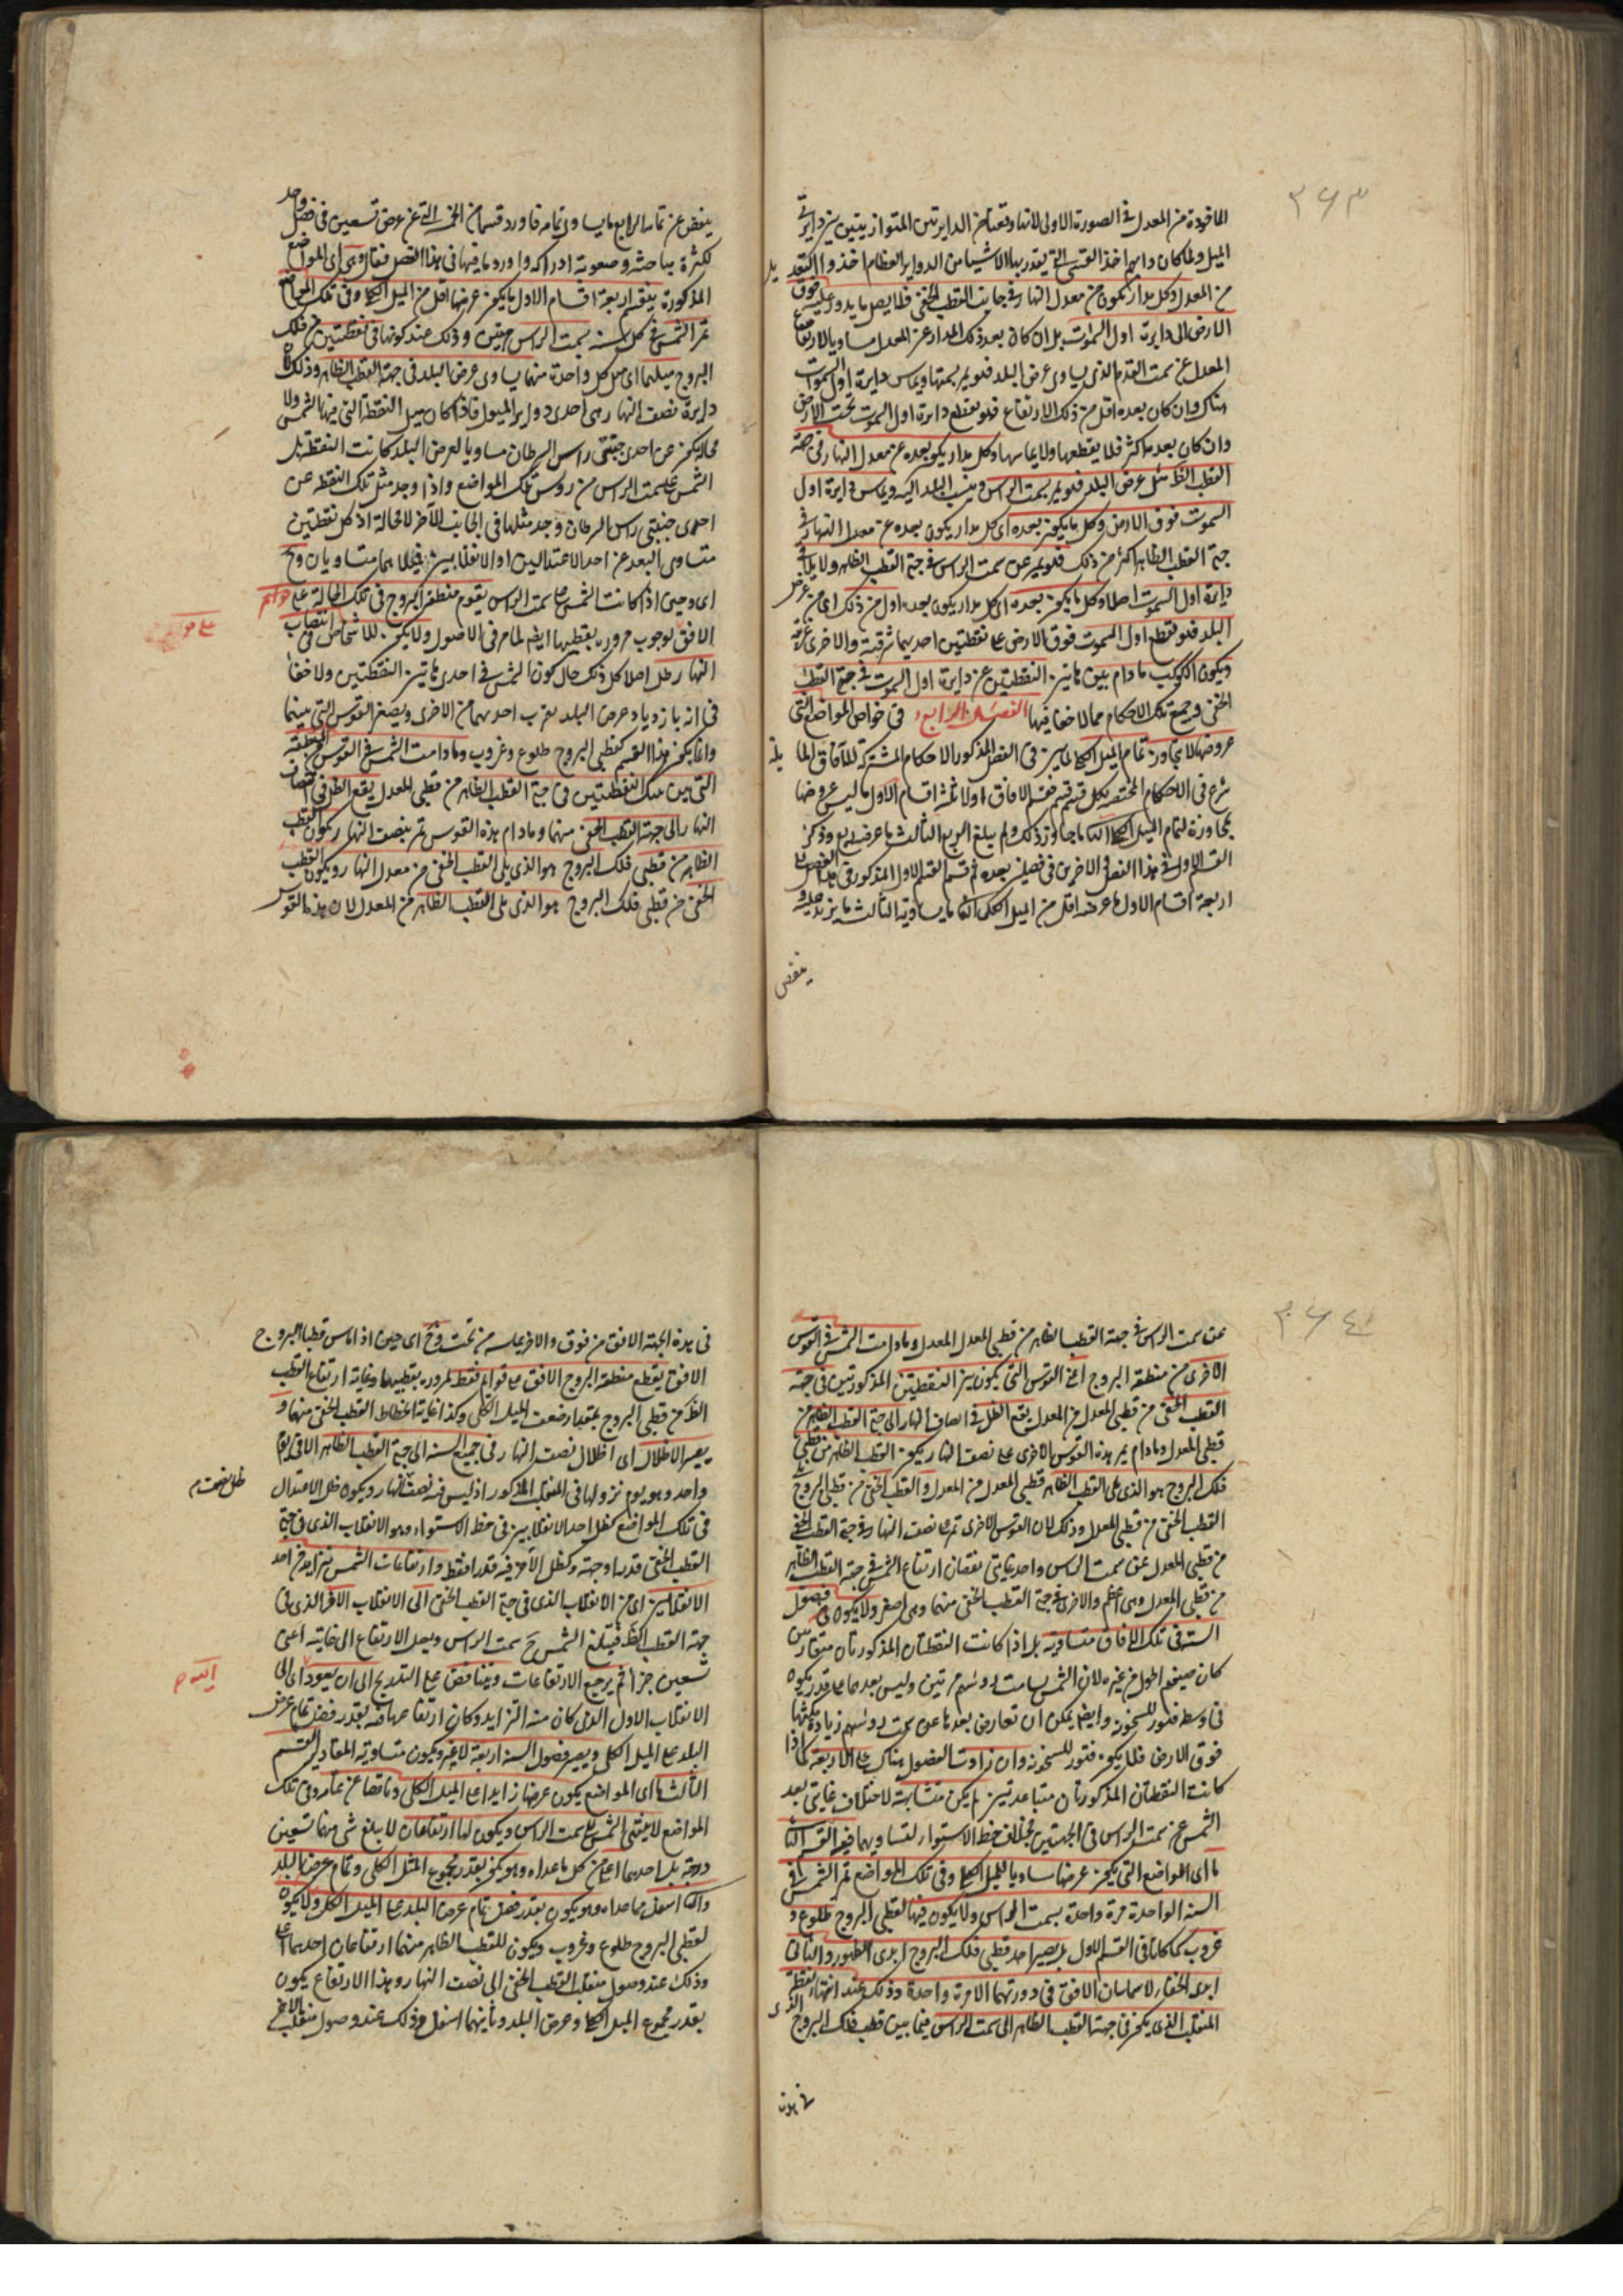 ٣٦٣
الماخوذة من المعدل في الصورة الاولى لانها وقعتا من الدايرتين المتوازيتين بين دايرتي
الميل ولما كان دابهم اخذ القسي التي يقدر بها الاشياء من الدواير العظام اخذوا التعد يل
من المعدل وكل مدار يكون من معدل النهار في جانب القطب الخفي فلا يصل ما يدور عليه فوق
الارض الى دايرة اول السموت بل ان كان بعد ذلك المدار عن المعدل مساويا لارتفاع
المعدل عن سمت القدم الذي يساوي عرض البلد فهو يمر بسمتها ويماس دايرة اول السموت
هناك وان كان بعده اقل من ذلك الارتفاع فهو يقطع دايرة اول السموت تحت الارض
وان كان بعده اكثر فلا يقطعها ولا يماسها وكل مدار يكون بعده عن معدل النهار في جهة
القطب الظ مثل عرض البلد فهو يمر بسمت الراس وينسب البلد اليه ويماس دايرة اول
السموت فوق الارض وكل ما يكون بعده اي كل مدار يكون بعده عن معدل النهار في
جهة القطب الظاهر اكثر من ذلك فهو يمر عن سمت الراس في جهة القطب الظاهر ولا يلاقي
دايرة اول السموت اصلا وكل ما يكون بعده اي كل مدار يكون بعده اقل من ذلك اي من عرض
البلد فهو يقطع اول السموت فوق الارض على نقطتين احديهما شرقية والاخرى غربية
ويكون الكوكب مادام بين هاتين النقطتين عن دايرة اول السموت في جهة القطب
الخفي وجميع تلك الاحكام مما لا خفا فيها الفصل الرابع في خواص المواضع التي
عروضها لا يتجاوز تمام الميل الكلي لما بين في الفصل المذكور الاحكام المشتركة للآفاق الما يلة
شرع في الاحكام المختصة بكل قسم قسم فقسم الافاق اولا ثلثة اقسام الاول ما ليس عروضها
مجاوزة لتمام الميل الكلي الثاني ما جاوز ذلك ولم يبلغ الربع الثالث ما عرضه ربع وذكر
القسم الاول في هذا الفصل والاخرين في فصلين بعده ثم قسم القسم الاول المذكور في هذا الفصل
اربعة اقسام الاول ما عرضه اقل من الميل الكلي الثاني ما يساويه الثالث ما يزيد عليه و
ينقص
ينقص عن تمامه الرابع ما يساوي تمامه فاورد قسما من الخمسة التي عن عرض تسعين في فصل واحد
لكثرة مباحثه وصعوبة ادراكه واورد ما فيها في هذا الفصل فقال وهي اي المواضع
المذكورة ينقسم اربعة اقسام الاول ما يكون عرضها اقل من الميل الكلي وفي تلك المواضع
تمر الشمس في كل سنة بسمت الراس مرتين وذلك عند كونها في نقطتين من فلك
البروج ميلهما اي ميل كل واحدة منهما يساوي عرض البلد في جهة القطب الظاهر وذلك لان
دايرة نصف النهار هي احدى دواير الميول فاذا كان ميل النقطة التي فيها الشمس ولا
محالة يكون عن احدى جنبتي راس السرطان مساويا لعرض البلد كانت النقطة بل
الشمس على سمت الراس من روس تلك المواضع واذا وجد مثل تلك النقطة عن
احدى جنبتي راس السرطان وجد مثلها في الجانب الآخر لا محالة اذ كل نقطتين
متساوي البعد عن احد الاعتدالين او الانقلابين فميلاهما متساويان وح
اي وحين اذا كانت الشمس على سمت الراس يقوم منطقة البروج في تلك الحالة على قوايم
الافق لوجوب مروره بقطبيها ايضا لما مر في الاصول ولا يكون للاشخاص في انتصاب
النهار ظل اصلا كل ذلك حال كون الشمس في احدى هاتين النقطتين ولا خفأ
في انه بازدياد عرض البلد يقرب احدهما من الاخرى ويصغر القوس التي بينهما
وانما يكون لهذا القسم لقطبي البروج طلوع وغروب ومادامت الشمس في القوس المنطقة
التي بين تلك النقطتين في جهة القطب الظاهر من قطبي المعدل يقع الظل في انتصاف
النهار الى جهة القطب الخفي منهما ومادام هذه القوس تمر بنصف النهار يكون القطب
الظاهر من قطبي فلك البروج هو الذي يلي القطب الخفي من معدل النهار ويكون القطب
الخفي من قطبي فلك البروج هو الذي يلي القطب الظاهر من المعدل لان هذه القوس
٣٦٤
عن سمت الراس في جهة القطب الظاهر من قطبي المعدل ومادامت الشمس في القوس
الاخرى من منطقة البروج اعني القوس التي يكون بين النقطتين المذكورتين في جهة
القطب الخفي من قطبي المعدل من المعدل يقع الظل في انصاف النهار الى جهة القطب الظاهر من
قطبي المعدل ومادام يمر هذه القوس الاخرى على نصف النهار يكون القطب الظاهر من قطبي
فلك البروج هو الذي يلي القطب الظاهر من قطبي المعدل من المعدل والقطب الخفي من قطبي البروج
القطب الخفي من قطبي المعدل وذلك لان القوس الاخرى تمر على نصف النهار في جهة القطب الخفي
من قطبي المعدل عن سمت الراس واحد غايتي نقصان ارتفاع الشمس في جهة القطب الظاهر
من قطبي المعدل وهي اعظم والاخرى في جهة القطب الخفي منهما وهي اصغر ولا يكون فصول
السنة في تلك الافاق متساوية بل اذا كانت النقطتان المذكورتان متقاربتين
كان صيفهم اطول من غيره لان الشمس يسامت لروسهم مرتين وليس بعدها ما قدر يكون
في وسط فتور للسخونة وايضا يمكن ان تعارض بعدها عن سمت روسهم زيادة مكثها
فوق الارض فلا يكون فتور للسخونة وان زادت الفصول هناك على الاربعة كما اذا
كانت النقطتان المذكورتان متباعدتين لم يكن متشابهة لاختلاف غايتي بعد
الشمس عن سمت الراس في الجهتين بخلاف خط الاستواء لتساويهما فيه القسم الثاني
ما اي المواضع التي يكون عرضها مساويا للميل الكلي وفي تلك المواضع تمر الشمس في
السنة الواحدة مرة واحدة بسمت الراس ولا يكون فيها لقطبي البروج طلوع و
غروب كما كانا في القسم الاول بل يصير احد قطبي فلك البروج ابدي الظهور والثاني
ابدي الخفاء لا يماسان الافق في دورتهما الا مرة واحدة وذلك عند انتهاء نقطة
المنقلب الذي يكون في جهة القطب الظاهر الى سمت الراس فيما بين قطب فلك البروج الذي
في هذه
في هذه الجهة الافق من فوق والاخر يماسه من تحت وح اي حين اذا ماس قطبا البروج
الافق يقطع منطقة البروج الافق على قوايم فقط لمروره بقطبيها وغاية ارتفاع القطب
الظ من قطبي البروج بمقدار ضعف الميل الكلي وكذا غاية انحطاط القطب الخفي منهما و
يصير الاظلال اي اظلال نصف النهار في جميع السنة الى جهة القطب الظاهر الا في يوم
واحد وهو يوم نزولها في المنقلب المذكور اذ ليس فيه نصف النهار ويكون ظل الاعتدال
ظل نصف
في تلك المواضع كظل احد الانقلابين في خط الاستواء وهو الانقلاب الذي في جهة
القطب الخفي قدرا وجهة وكظل الآخر فيه قدرا فقط وارتفاعات الشمس يتزايد من احد
الانقلابين اي من الانقلاب الذي في جهة القطب الخفي الى الانقلاب الاخر الذي في
جهة القطب الظ فيبلغ الشمس ح سمت الراس ويصل الارتفاع الى غايته اعني
تسعين جزأ ثم يرجع الارتفاعات ويتناقص على التدريج الى ان يعود اي الى
اليه
الانقلاب الاول الذي كان منه التزايد وكان ارتفاعها فيه بقدر فضل تمام عرض
البلد على الميل الكلي ويصير فصول السنة اربعة لا غير ويكون متساوية المقادير القسم
الثالث ما اي المواضع يكون عرضها زايدا على الميل الكلي وناقصا عن تمامه وفي تلك
المواضع لا ينتهي الشمس الى سمت الراس ويكون لها ارتفاعان لا يبلغ شي منهما تسعين
درجة بل احدهما اعلى من كل ما عداه وهو يكون بقدر مجموع الميل الكلي وتمام عرض البلد
والثاني اسفل مما عداه وهو يكون بقدر فضل تمام عرض البلد على الميل الكلي ولا يكون
لقطبي البروج طلوع وغروب ويكون للقطب الظاهر منهما ارتفاعان احدهما اعلى
وذلك عند وصول منقلب القطب الخفي الى نصف النهار وهذا الارتفاع يكون
بقدر مجموع الميل الكلي وعرض البلد وثانيهما اسفل وذلك عند وصول منقلب الاخر